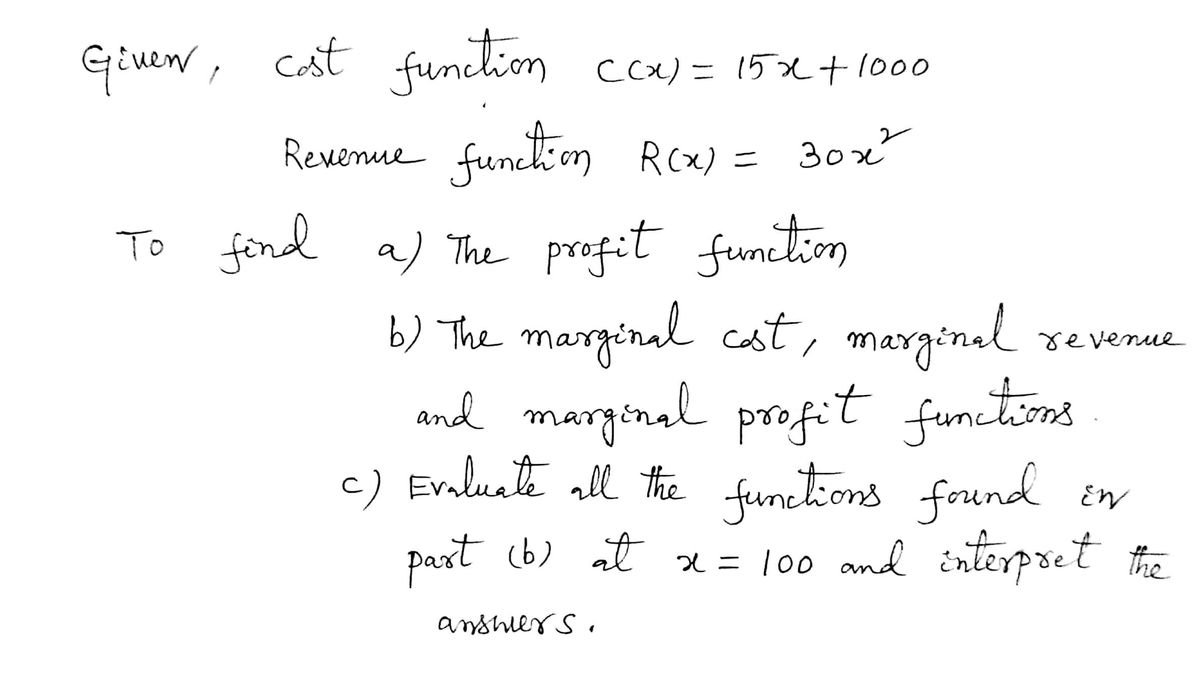 Given, cost function C(x) = 15x + 1000
Revenue function R(x) = 30x²
To find a) The profit function
b) The marginal cost, marginal revenue
and marginal profit functions.
c) Evaluate all the functions found in
part (b) at x = 100 and interpret the
answers.